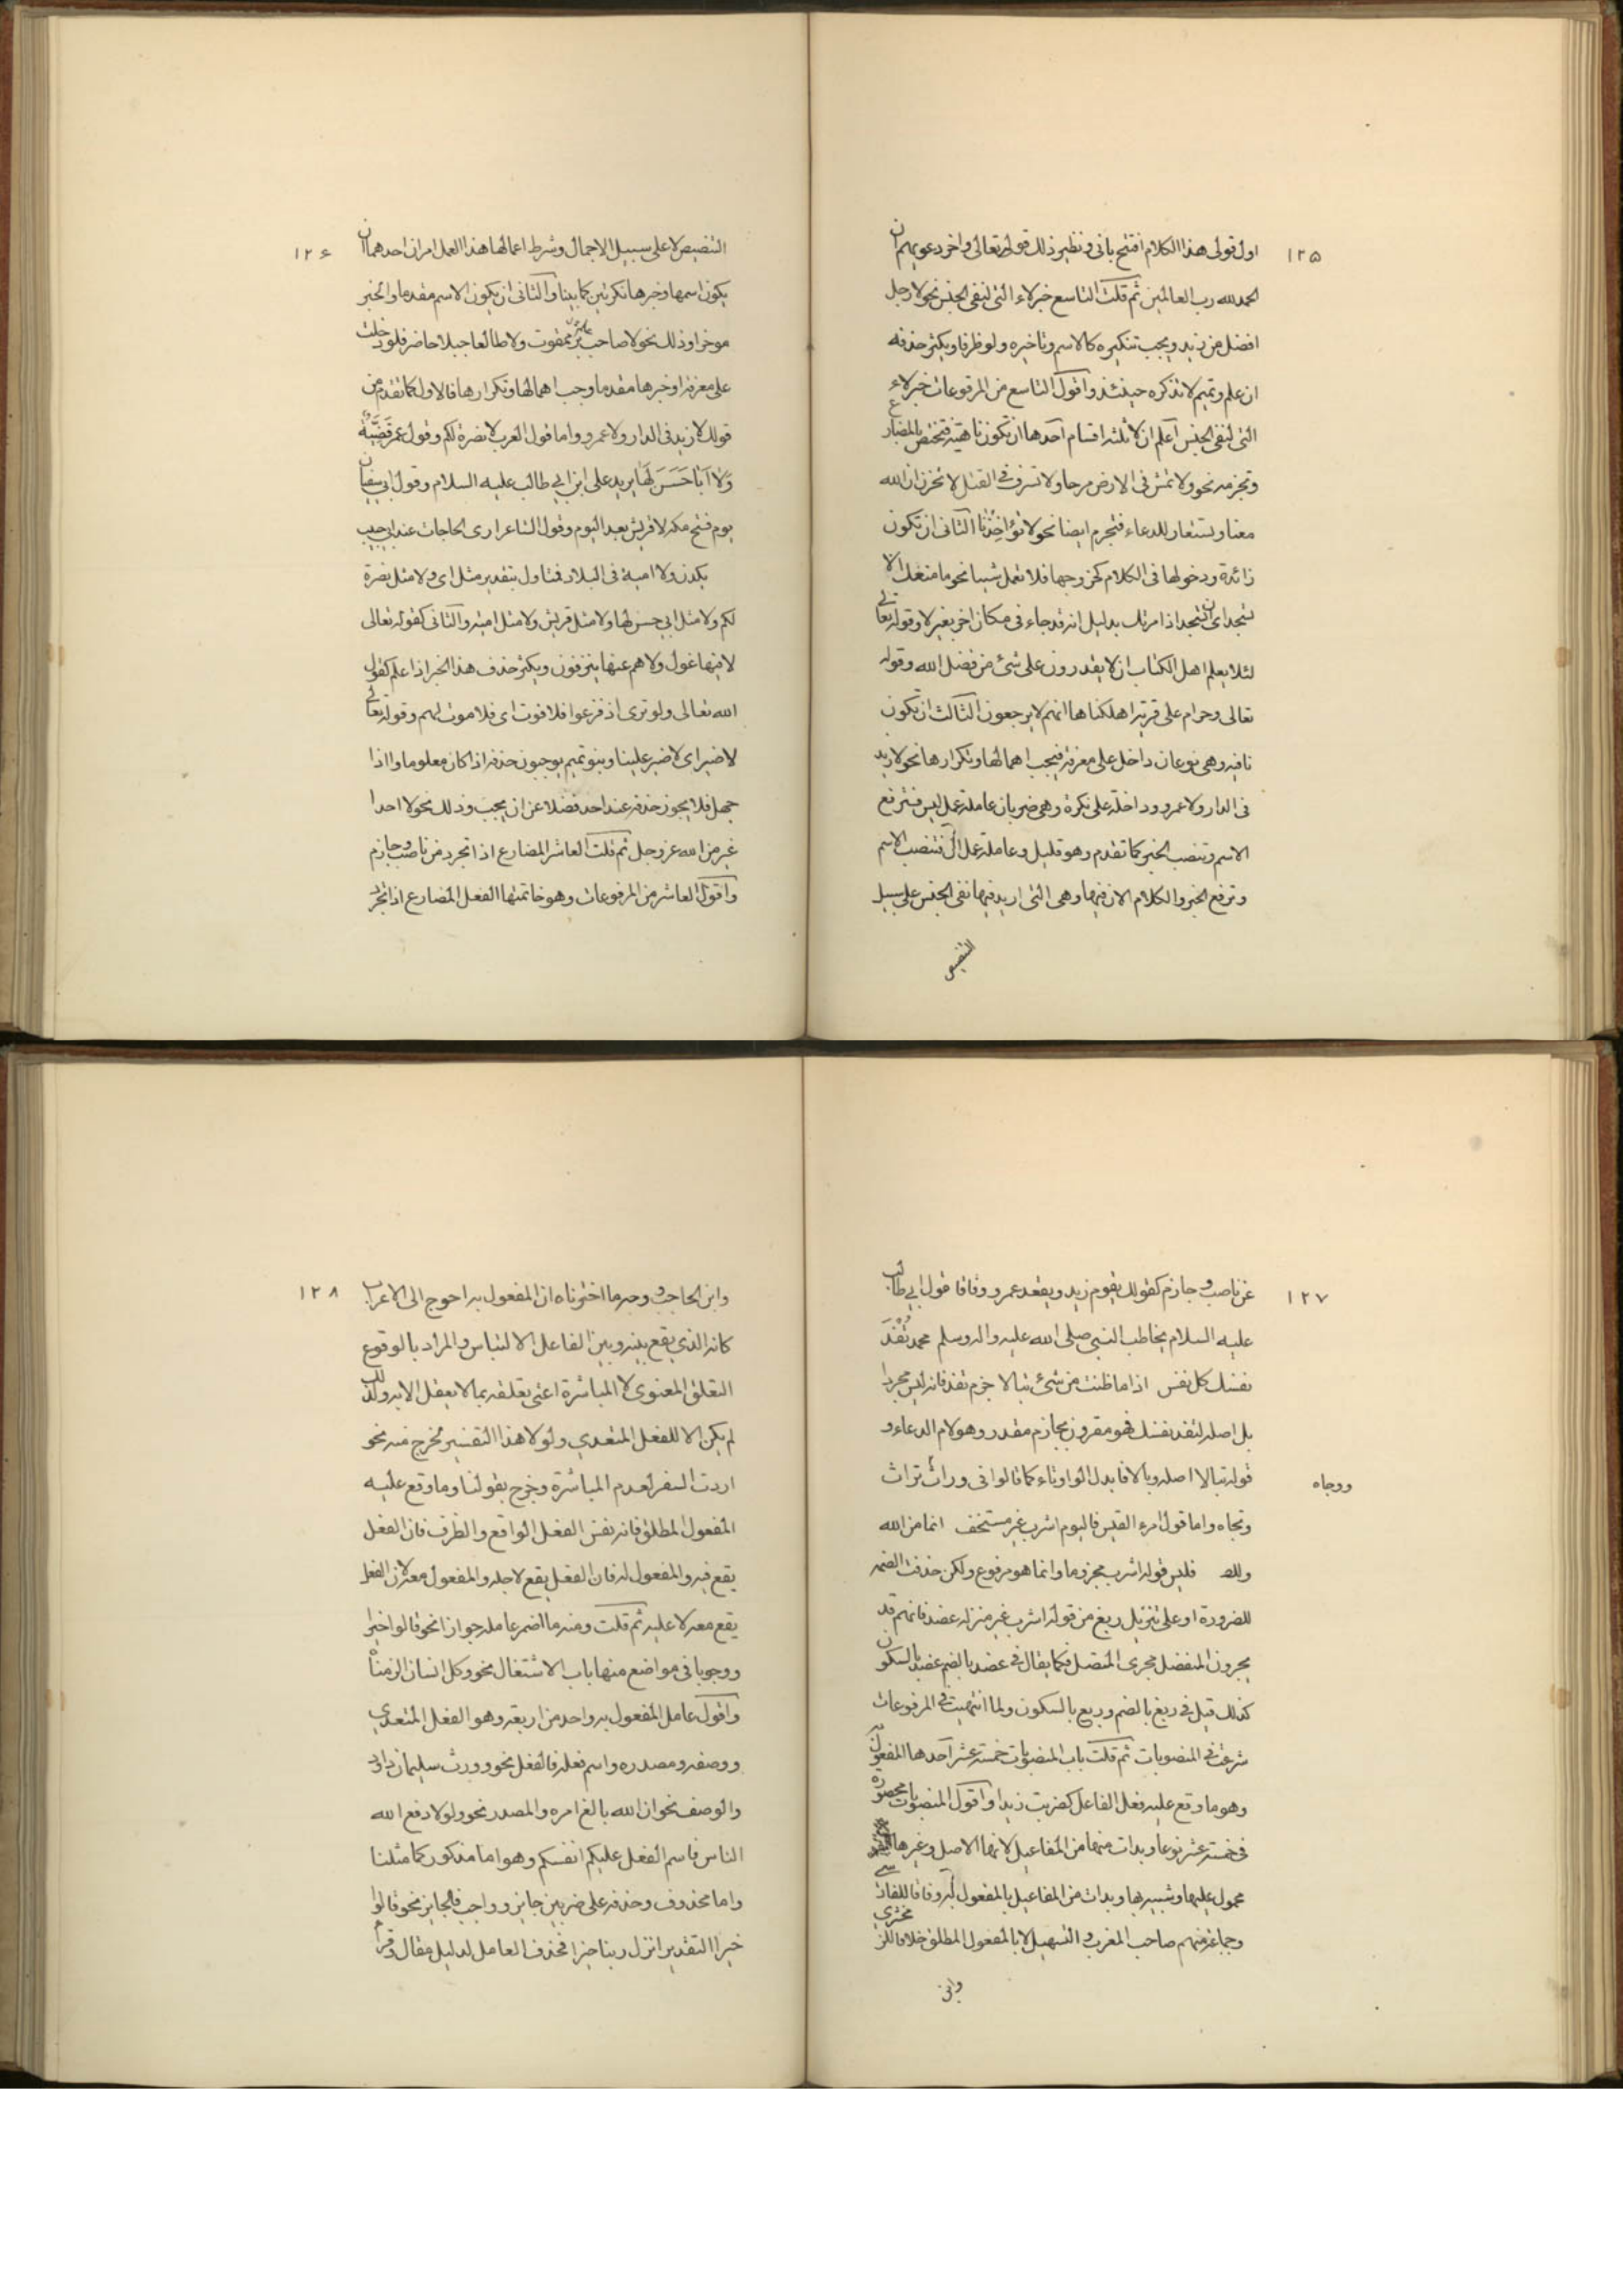 ١٢٥
اول قولى هذا الكلام افتتح بانى و نظير ذلك قوله تعالى و اخر دعويهم ان
الحمد لله رب العالمين ثم قلت التاسع خبر لاء التى لنفى الجنس نحو لا رجل
افضل من زيد و يجب تنكيره كالاسم و تاخيره و لو ظرفا و يكثر حذفه
ان علم و تميم لا تذكره حينئذ و اقول التاسع من المرفوعات خبر لاء
التى لنفى الجنس اعلم ان لا ثلثه اقسام احدها ان تكون ناهية فتختص بالمضارع
و تجزمه نحو و لا تمش فى الارض مرحا و لا تسرف فى القتل لا تحزن ان الله
معنا و تستعار للدعاء فتجزم ايضا نحو لا تؤاخذنا الثانى ان تكون
زائدة و دخولها فى الكلام كخروجها فلا تعمل شيئا نحو ما منعك الا
تسجد اى ان تسجد اذ امرتك بدليل انه قد جاء فى مكان اخر بغير لا و قوله تعالى
لئلا يعلم اهل الكتاب ان لا يقدرون على شئ من فضل الله و قوله
تعالى و حرام على قرية اهلكناها انهم لا يرجعون الثالث ان تكون
نافيه و هى نوعان داخل على معرفة فيجب اهمالها و تكرارها نحو لا زيد
فى الدار و لا عمرو و داخلة على نكرة و هى ضربان عاملة عمل ليس فترفع
الاسم و تنصب الخبر كما تقدم و هو قليل و عاملة عمل ان فتنصب الاسم
و ترفع الخبر و الكلام الان فيها و هى التى اريد فيها نفى الجنس على سبيل
التنصيص
١٢٦
التنصيص لا على سبيل الاجمال و شرط اعمالها هذا العمل امران احدهما ان
يكون اسمها و خبرها نكرتين كما بينا و الثانى ان يكون الاسم مقدما و الخبر
موخرا و ذلك نحو لا صاحب بر ممقوت و لا طالعا جبلا حاضر فلو دخلت
على معرفة او خبرها مقدما وجب اهمالها و تكرارها فالاول كما تقدم من
قولك لا زيد فى الدار و لا عمرو و اما قول العرب لا بصرة لكم و قول عمر قضية
و لا ابا حسن لها يريد على ابن ابي طالب عليه السلام و قول ابي سفيان
يوم فتح مكه لا قريش بعد اليوم و قول الشاعر ارى الحاجات عند ابي خبيب
نكدن و لا امية فى البلاد فمتاول بتقدير مثل اى و لا مثل بصرة
لكم و لا مثل ابي حسن لها و لا مثل قريش و لا مثل اميه و الثانى كقوله تعالى
لا فيها غول و لا هم عنها ينزفون و يكثر حذف هذا الخبر اذا علم كقول
الله تعالى و لو ترى اذ فزعوا فلا فوت اى فلا موت لهم و قوله تعالى
لا ضير اى لا ضير علينا و بنو تميم يوجبون حذفه اذا كان معلوما و اذا
جهل فلا يجوز حذفه عند احد فضلا عن ان يجب و ذلك نحو لا احد ا
غير من الله عز و جل ثم قلت العاشر المضارع اذا تجرد من ناصب و جازم
و اقول العاشر من المرفوعات و هو خاتمتها الفعل المضارع اذا تجرد
١٢٧
عن ناصب و جازم كقولك يقوم زيد و يقعد عمرو و فاقا قول ابي طالب
عليه السلام يخاطب النبى صلى الله عليه و اله و سلم محمد تفد
نفسك كل نفس اذا ما ظنت من شئ تبالا جزم تفد فانه ليس مجردا
بل اصله لتفد نفسك فهو مقرون بجازم مقدر و هو لام الدعاء و
قوله تبالا اصله وبالا فابدل الواو تاء كما قالوا فى وراث تراث
ووجاه
و تجاه و اما قول امرء القيس فاليوم اشرب غير مستحقب اثما من الله
فليس قوله اشرب مجزوما و انما هو مرفوع و لكن حذفت الضمه
للضرورة او على تنزيل ربغ من قوله اشرب غير منزله عضد فانهم قد
يجرون المنفصل مجرى المتصل فكما يقال فى عضد بالضم عضد بالسكون
كذلك قيل فى ربغ بالضم و ربغ بالسكون و لما انتهيت فى المرفوعات
شرعت فى المنصوبات ثم قلت باب المنصوبات خمسة عشر احدها المفعول به
و هو ما وقع عليه فعل الفاعل كضربت زيدا و اقول المنصوبات محصورة
فى خمسة عشر نوعا و بدات منها من المفاعيل لانها الاصل و غيرها
محمول عليها و شبيه بها و بدات من المفاعيل بالمفعول به وفاقا للفارسي
و جماعة منهم صاحب المغرب و التسهيل لا بالمفعول المطلق خلافا للزمخشري
و ابن
١٢٨
و ابن الحاجب و وجه ما اخترناه ان المفعول به احوج الى الاعراب
كانه الذي يقع بينه و بين الفاعل الالتباس و المراد بالوقوع
التعلق المعنوى لا المباشرة اعنى تعلقه بما لا يعقل الا به و لذلك
لم يكن الا للفعل المتعدي و لولا هذا التفسير لخرج منه نحو
اردت السفر لعدم المباشرة و خرج بقولنا و ما وقع عليه
المفعول المطلق فانه نفس الفعل الواقع و الظرف فان الفعل
يقع فيه و المفعول له فان الفعل يقع لاجله و المفعول معه لان الفعل
يقع معه لا عليه ثم قلت و منه ما اضمر عامله جوازا نحو قالوا خيرا
و وجوبا فى مواضع منها باب الاشتغال نحو و كل انسان الزمناه
و اقول عامل المفعول به واحد من اربعة و هو الفعل المتعدي
و وصفه و مصدره و اسم فعله فالفعل نحو و ورث سليمان داود
و الوصف نحو ان الله بالغ امره و المصدر نحو و لولا دفع الله
الناس فاسم الفعل عليكم انفسكم و هو اما مذكور كما مثلنا
و اما محذوف و حذفه على ضربين جايز و واجب فالجايز نحو قالوا
خيرا التقدير انزل ربنا خيرا فحذف العامل لدليل مقال و قرا